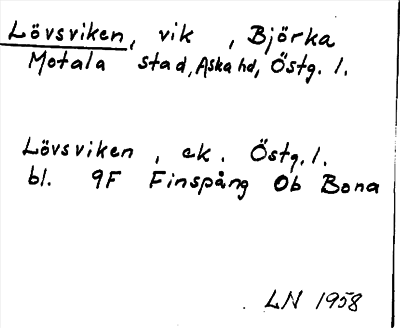 Lövsviken, vik , Björka
Motala stad, Aska hd, Östg. l.
Lövsviken , ek. Östg. l.
bl. 9F Finspång Ob Bona
LN 1958